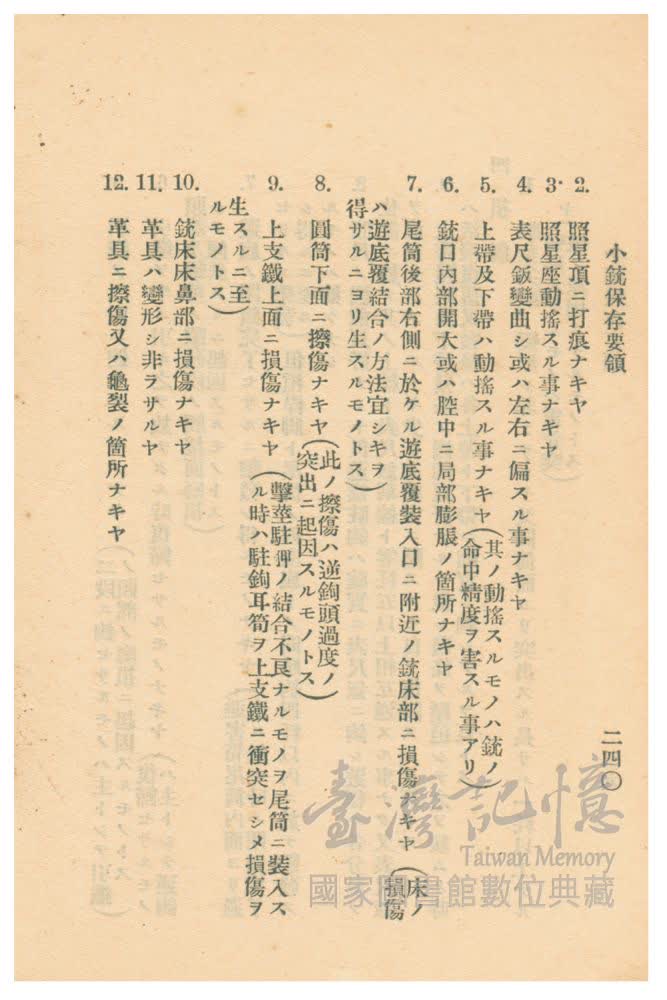 小銃保存要領
二四〇
2. 照星頂ニ打痕ナキヤ
3. 照星座動搖スル事ナキヤ
4. 表尺鈑變曲シ或ハ左右ニ偏スル事ナキヤ
5. 上帶及下帶ハ動搖スル事ナキヤ(其ノ動搖スルモノハ銃ノ
命中精度ヲ害スル事アリ)
6. 銃口內部開大或ハ腔中ニ局部膨脹ノ箇所ナキヤ
7. 尾筒後部右側ニ於ケル遊底覆裝入口ニ附近ノ銃床部ニ損傷ナキヤ(床ノ
損傷
ハ遊底覆結合ノ方法宜シキヲ
得サルニヨリ生スルモノトス)
8. 圓筒下面ニ擦傷ナキヤ(此ノ擦傷ハ逆鉤頭過度ノ
突出ニ起因スルモノトス)
9. 上支鐵上面ニ損傷ナキヤ(擊莖駐胛ノ結合不良ナルモノヲ尾筒ニ裝入ス
ル時ハ駐鉤耳筍ヲ上支鐵ニ衝突セシメ損傷ヲ
生スルニ至
ルモノトス)
10. 銃床床鼻部ニ損傷ナキヤ
11. 革具ハ變形シ非ラサルヤ
12. 革具ニ擦傷又ハ龜裂ノ箇所ナキヤ
臺灣記憶
Taiwan Memory
國家圖書館數位典藏